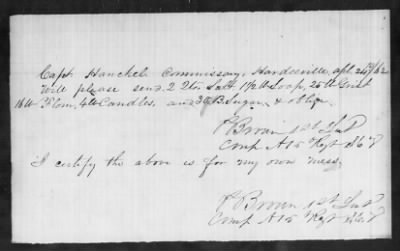 Capt Hanckel Commissary, Hardeeville, apl. 24th/62
Will please send 2 Qts Salt 1½ lb Soap, 25 lb Grist
16 lb Flour, 4 lb Candles, and 3 lb Sugar, & oblige
Brown 1st Lut
Comp A 15 Regt
I certify the above is for my own mess.
Brown 1st Lut
Comp A 15 Regt